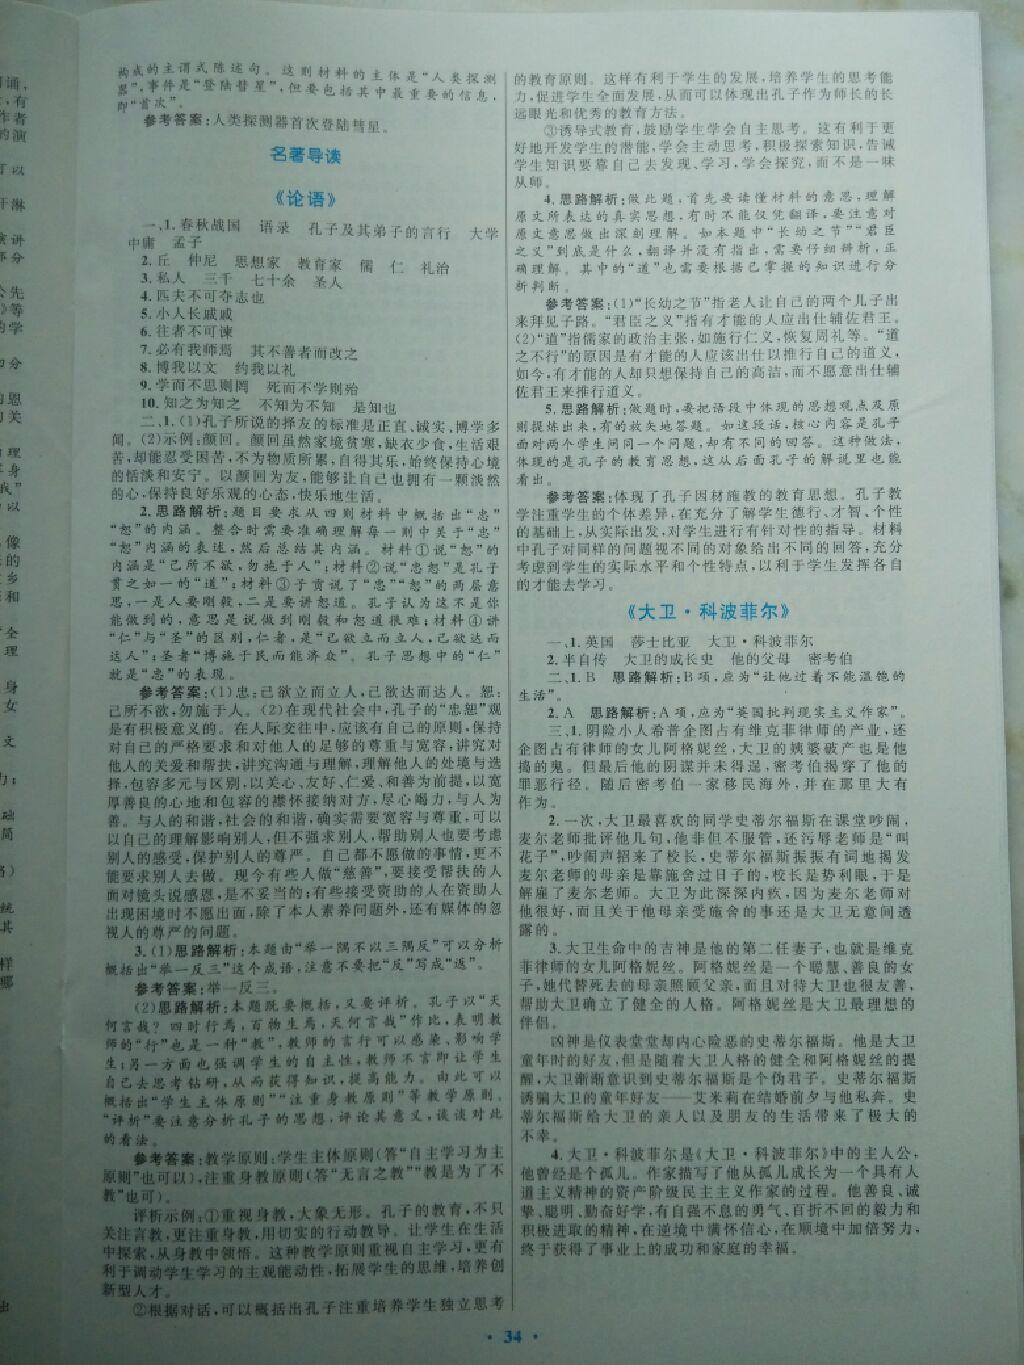 构成的主谓式陈述句。这则材料的主体是“人类探测
器”,事件是“登陆彗星”,但要包括其中最重要的信息,
即“首次”。
参考答案:人类探测器首次登陆彗星。
名著导读
《论语》
一、1.春秋战国 语录 孔子及其弟子的言行 大学
中庸 孟子
2.丘 仲尼 思想家 教育家 儒 仁 礼治
3.私人 三千 七十余 圣人
4.匹夫不可夺志也
5.小人长戚戚
6.往者不可谏
7.必有我师焉 其不善者而改之
8.博我以文 约我以礼
9.学而不思则罔 死而不学则殆
10.知之为知之 不知为不知 是知也
二、1.(1)孔子所说的择友的标准是正直、诚实,博学多
闻。(2)示例:颜回。颜回虽然家境贫寒,缺衣少食,生活艰
苦,却能忍受困苦,不为物质所累,自得其乐,始终保持心境
的恬淡和安宁。以颜回为友,能够让自己也拥有一颗淡然
的心,保持良好乐观的心态,快乐地生活。
2.思路解析:题目要求从四则材料中概括出“忠”
“恕”的内涵。整合时需要准确理解每一则中关于“忠”
“恕”内涵的表述,然后总结其内涵。材料①说“恕”的
内涵是“己所不欲,勿施于人”;材料②说“忠恕”是孔子
贯之如一的“道”;材料③子贡说了“忠”“恕”的两层意
思,一是人要刚毅,二是要讲恕道。孔子认为这不是你
能做到的,意思是说做到刚毅和恕道很难;材料④讲
“仁”与“圣”的区别,仁者,是“己欲立而立人,已欲达而
达人”;圣者“博施于民而能济众”。孔子思想中的“仁”
就是“忠”的表现。
参考答案:(1)忠:己欲立而立人,已欲达而达人。恕:
己所不欲,勿施于人。(2)在现代社会中,孔子的“忠恕”观
是有积极意义的。在人际交往中,应该有自己的原则,保持
对自己的严格要求和对他人的足够的尊重与宽容,讲究对
他人的关爱和帮扶,讲究沟通与理解,理解他人的处境与选
择,包容多元与区别,以关心、友好、仁爱、和善为前提,以宽
厚善良的心地和包容的襟怀接纳对方,尽心竭力,与人为
善。与人的和谐,社会的和谐,确实需要宽容与尊重,可以
以自己的理解影响别人,但不强求别人,帮助别人也要考虑
别人的感受,保护别人的尊严。自己都不愿做的事情,更不
能要求别人去做。现今有些人做“慈善”,要接受帮扶的人
面对镜头说感恩,是不妥当的;有些接受资助的人在资助人
出现困境时不愿出面,除了本人素养问题外,还有媒体的忽
视人的尊严的问题。
3.(1)思路解析:本题由“举一隅不以三隅反”可以分析
概括出“举一反三”这个成语,注意不要把“反”写成“返”。
参考答案:举一反三。
(2)思路解析:本题既要概括,又要评析。孔子以“天
何言哉?四时行焉,百物生焉,天何言哉”作比,表明教
师的“行”也是一种“教”,教师的言行可以感染、影响学
生;另一方面也强调学生的自主性,教师不言即让学生
自己去思考钻研,从而获得知识,提高能力。由此可以
概括出“学生主体原则”“注重身教原则”等教学原则。
“评析”要注意分析孔子的思想,评论其意义,谈谈对此
的看法。
参考答案:教学原则:学生主体原则(答“自主学习为主
原则”也可以),注重身教原则(答“无言之教”“教是为了不
教”也可)。
评析示例:①重视身教,大象无形。孔子的教育,不只
关注言教,更注重身教,用切实的行动教导。让学生在生活
中探索,从身教中领悟。这种教学原则重视自主学习,更有
利于调动学生学习的主观能动性,拓展学生的思维,培养创
新型人才。
②根据对话,可以概括出孔子注重培养学生独立思考
的教育原则。这样有利于学生的发展,培养学生的思考能
力,促进学生全面发展,从而可以体现出孔子作为师长的长
远眼光和优秀的教育方法。
③诱导式教育,鼓励学生学会自主思考。这有利于更
好地开发学生的潜能,学会主动思考,积极探索知识,告诫
学生知识要靠自己去发现、学习,学会探究,而不是一味
从师。
4.思路解析:做此题,首先要读懂材料的意思,理解
原文所表达的真实思想,有时不能仅凭翻译,要注意对
原文意思做出深刻理解。如本题中“长幼之节”“君臣
之义”到底是什么,翻译并没有指出,需要仔细辨析,正
确理解。其中的“道”也需要根据已掌握的知识进行分
析判断。
参考答案:(1)“长幼之节”指老人让自己的两个儿子出
来拜见子路。“君臣之义”指有才能的人应出仕辅佐君王。
(2)“道”指儒家的政治主张,如施行仁义,恢复周礼等。“道
之不行”的原因是有才能的人应该出仕以推行自己的道义,
如今,有才能的人却只想保持自己的高洁,而不愿意出仕辅
佐君王来推行道义。
5.思路解析:做题时,要把语段中体现的思想观点及原
则提炼出来,有的放矢地答题。如这段话,核心内容是孔子
面对两个学生问同一个问题,却有不同的回答。这种做法,
体现的是孔子的教育思想,这从后面孔子的解说里也能
看出。
参考答案:体现了孔子因材施教的教育思想。孔子教
学注重学生的个体差异,在充分了解学生德行、才智、个性
的基础上,从实际出发,对学生进行有针对性的指导。材料
中孔子对同样的问题视不同的对象给出不同的回答,充分
考虑到学生的实际水平和个性特点,以利于学生发挥各自
的才能去学习。
《大卫·科波菲尔》
一、1.英国 莎士比亚 大卫·科波菲尔
2.半自传 大卫的成长史 他的父母 密考伯
二、1.B 思路解析:B项,应为“让他过着不能温饱的
生活”。
2.A 思路解析:A项,应为“英国批判现实主义作家”。
三、1.阴险小人希普企图占有维克菲律师的产业,还
企图占有律师的女儿阿格妮丝,大卫的姨婆破产也是他
捣的鬼。但最后他的阴谋并未得逞,密考伯揭穿了他的
罪恶行径。随后密考伯一家移民海外,并在那里大有
作为。
2.一次,大卫最喜欢的同学史蒂尔福斯在课堂吵闹,
麦尔老师批评他几句,他非但不服管,还污辱老师是“叫
花子”,吵闹声招来了校长,史蒂尔福斯振振有词地揭发
麦尔老师的母亲是靠施舍过日子的,校长是势利眼,于是
解雇了麦尔老师。大卫为此深深内疚,因为麦尔老师对
他很好,而且关于他母亲受施舍的事还是大卫无意间透
露的。
3.大卫生命中的吉神是他的第二任妻子,也就是维克
菲律师的女儿阿格妮丝。阿格妮丝是一个聪慧、善良的女
子,她代替死去的母亲照顾父亲,而且对待大卫也很友善,
帮助大卫确立了健全的人格。阿格妮丝是大卫最理想的
伴侣。
凶神是仪表堂堂却内心险恶的史蒂尔福斯。他是大卫
童年时的好友,但是随着大卫人格的健全和阿格妮丝的提
醒,大卫渐渐意识到史蒂尔福斯是个伪君子。史蒂尔福斯
诱骗大卫的童年好友——艾米莉在结婚前夕与他私奔。史
蒂尔福斯给大卫的亲人以及朋友的生活带来了极大的
不幸。
4.大卫·科波菲尔是《大卫·科波菲尔》中的主人公,
他曾经是个孤儿。作家描写了他从孤儿成长为一个具有人
道主义精神的资产阶级民主主义作家的过程。他善良、诚
挚、聪明、勤奋好学,有自强不息的勇气、百折不回的毅力和
积极进取的精神,在逆境中满怀信心,在顺境中加倍努力,
终于获得了事业上的成功和家庭的幸福。
· 34 ·